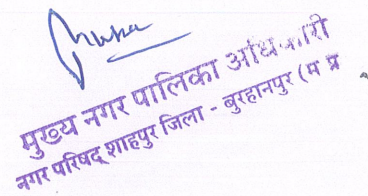 मुख्य नगर पालिका अधिकारी
नगर परिषद् शाहपुर जिला - बुरहानपुर (म प्र